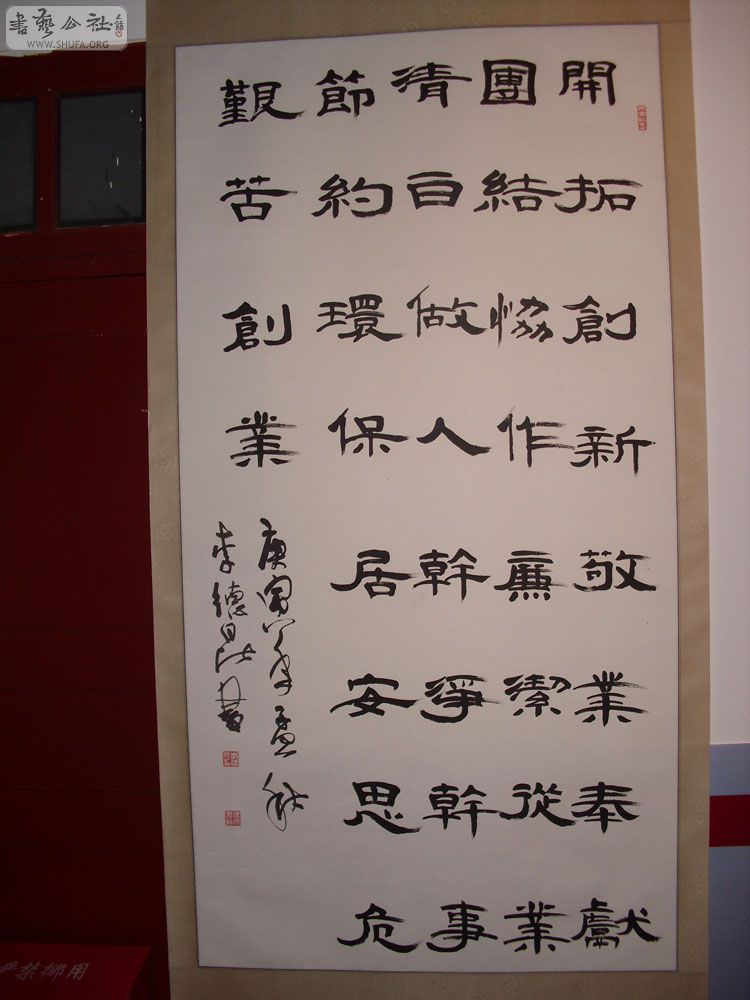 開拓創新敬業奉獻
團結協作廉潔從業
清白做人幹淨幹事
節約環保居安思危
艱苦創業
庚寅年孟秋
李德昌書
書藝公社
WWW.SHUFA.ORG
严禁挪用